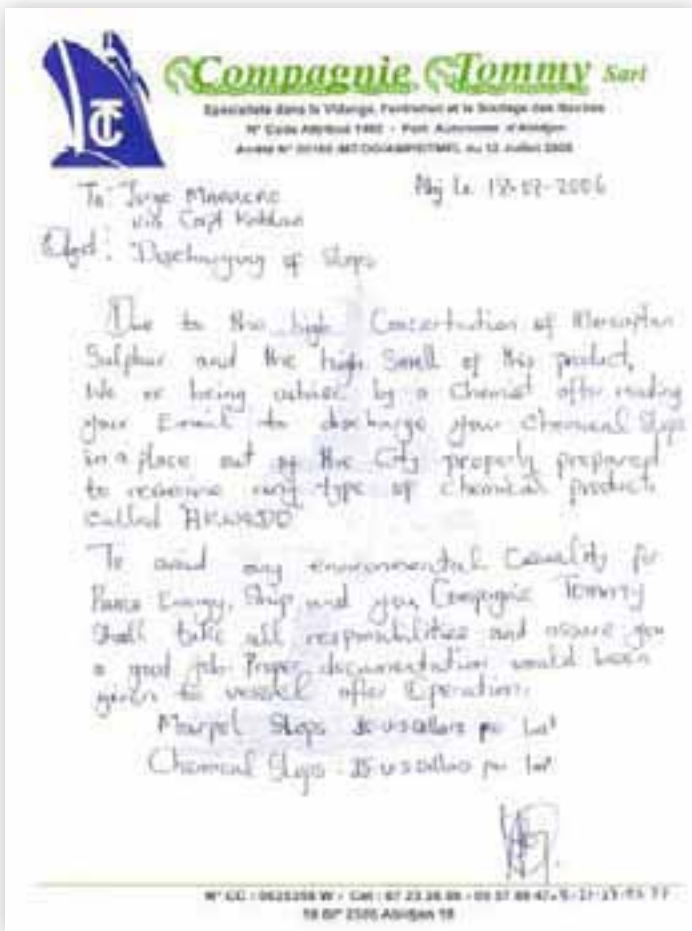 Compagnie Tommy Sarl
Spécialiste dans la Vidange, l'entretien et le Soutage des Navires
N° Code Attribué - Port Autonome d'Abidjan
TC
Abj Le 18-07-2006
To: Jorge
via Capt
Objet: Discharging of Slops
Due to the high Concertration of Mercaptan
Sulphur and the high Smell of this product,
We re being advise by a Chemist after reading
your Email to discharge your Chemical Slops
in a place out of the City properly prepared
to receive any type of chemical product
called "AKWEDO"
To avoid any environmental Casuality for
Puma Energy, Ship and you, Compagnie Tommy
Shall take all responsibilities and assure you
a good job. Proper documentation would been
given to vessel after Operation.
Marpol Slops US dollars per
Chemical Slops : 35 us dollars per
18 BP 2505 Abidjan 18